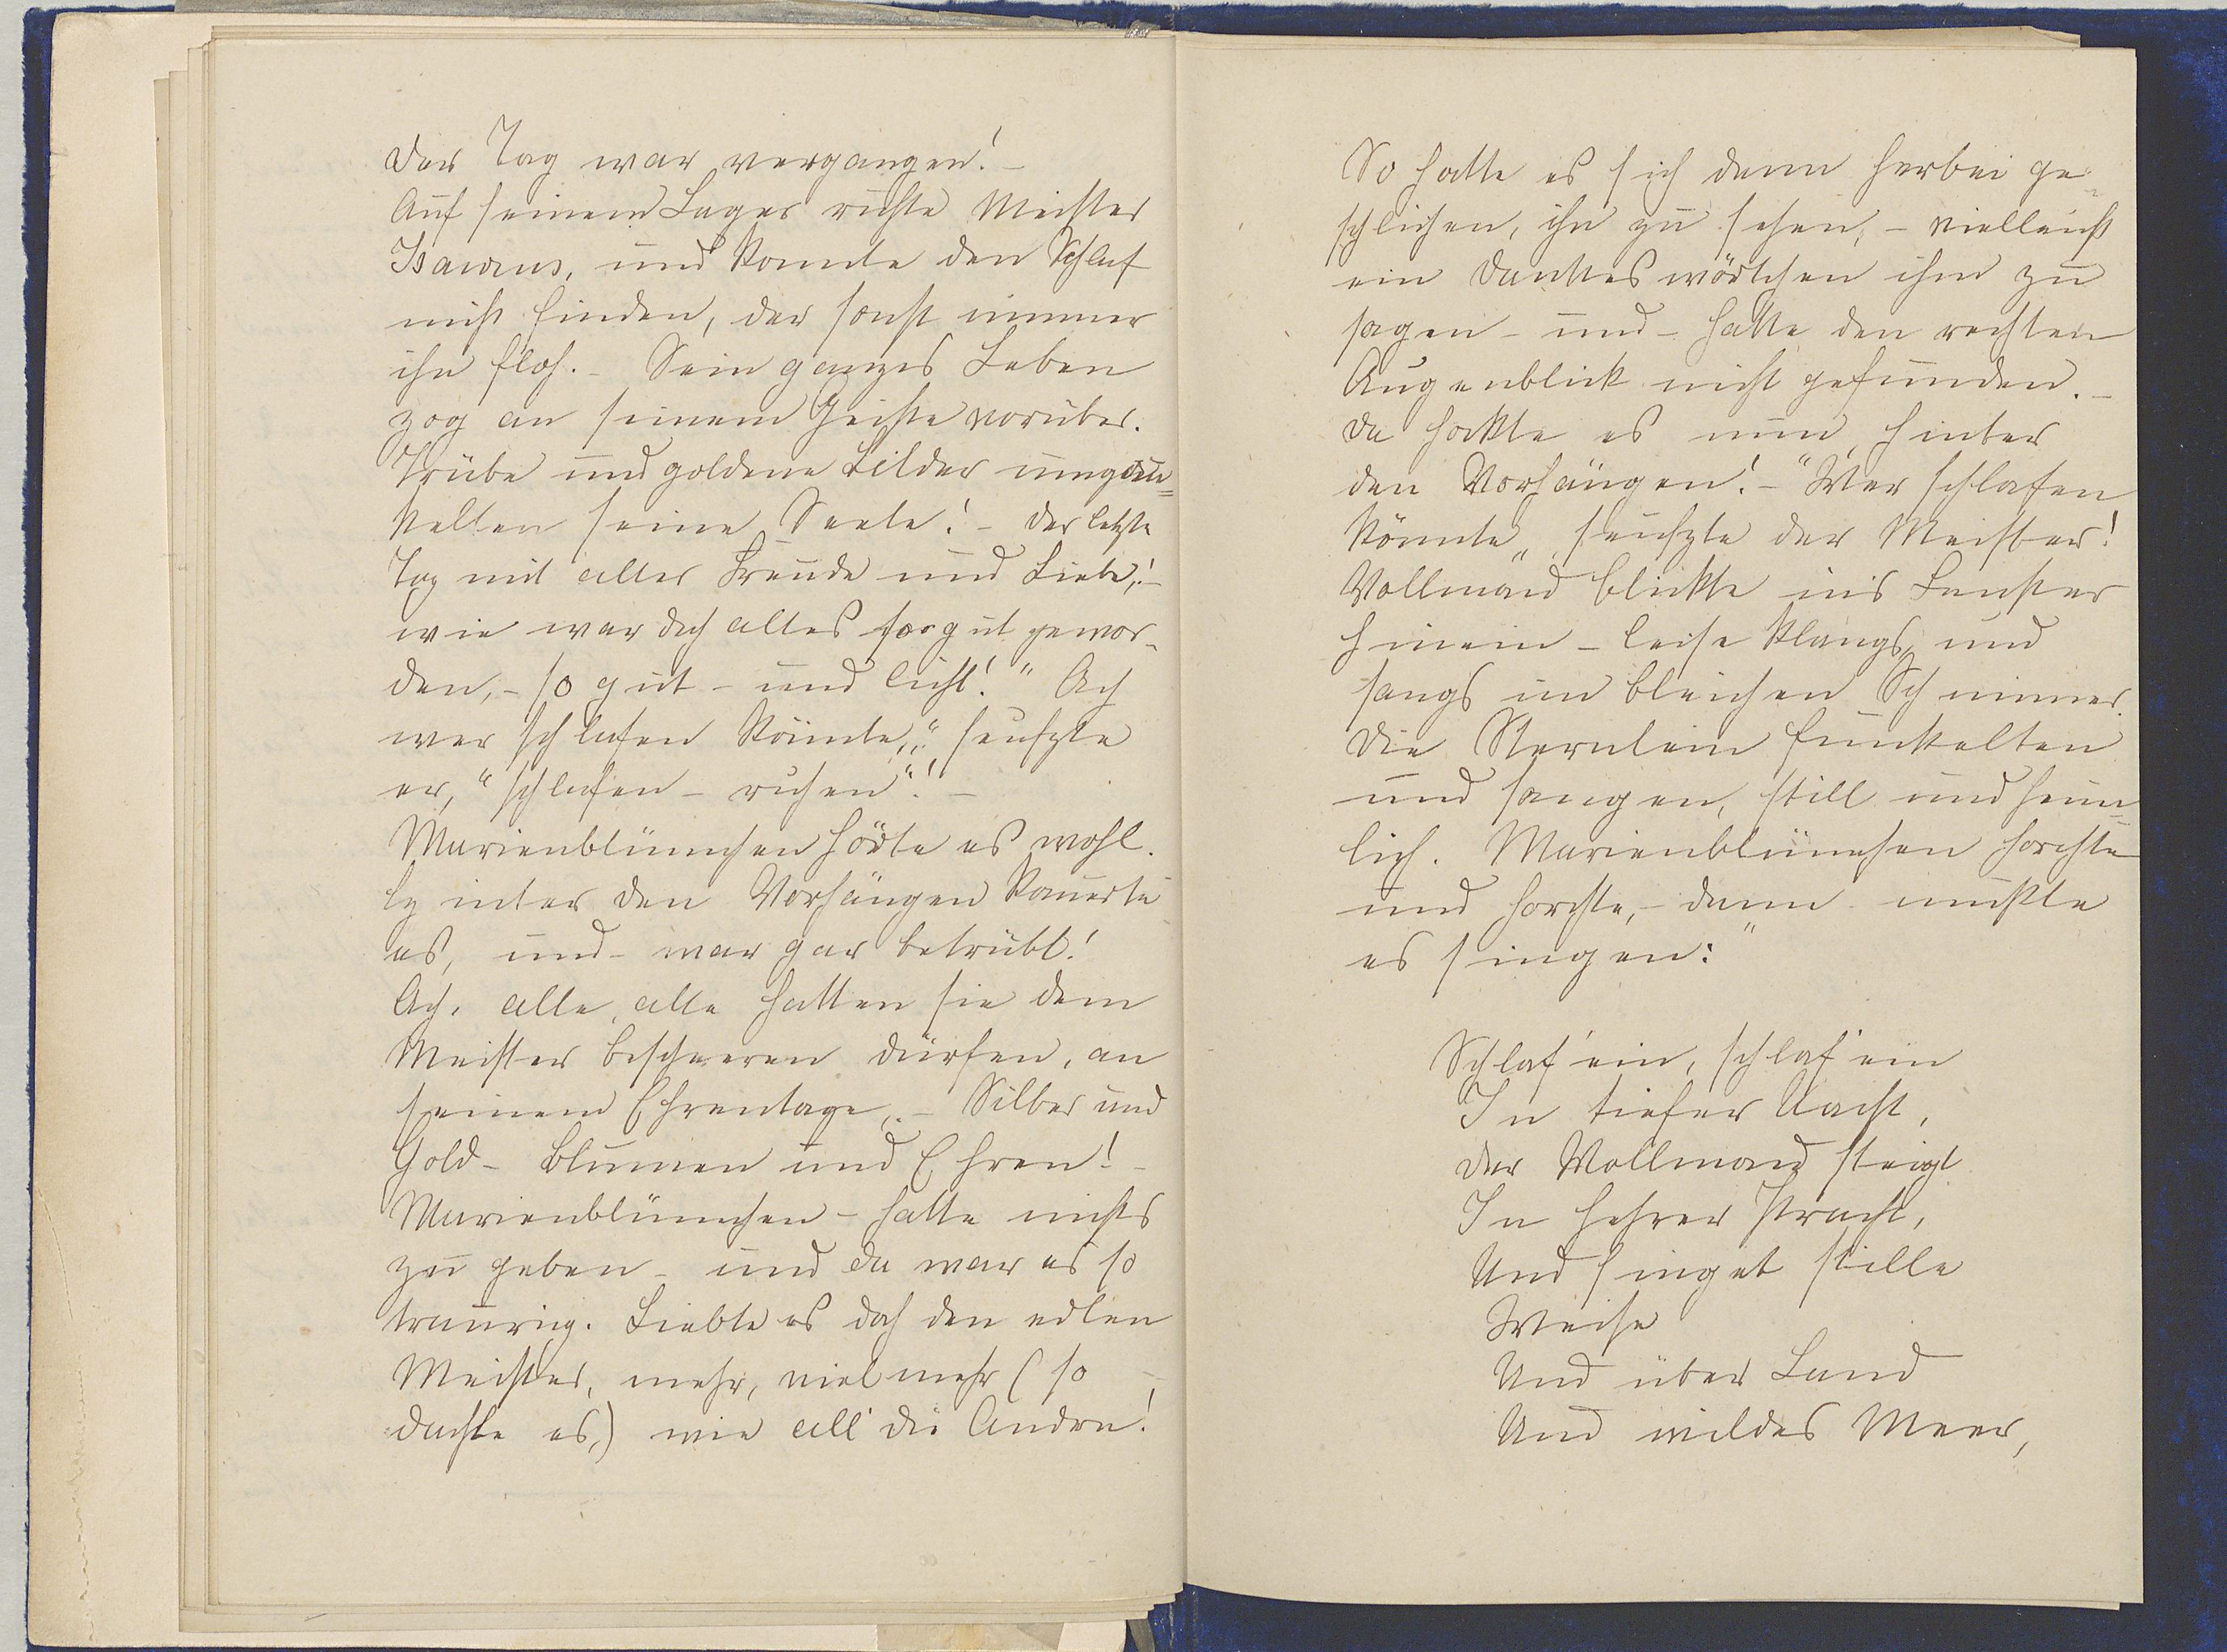 Der Tag war vergangen! –
Auf seinem Lager ruhte Meister
Isarius, und konnte den Schlaf
nicht finden, der sonst immer
ihn floh. – Sein ganzes Leben
zog an seinem Geiste vorüber.
Trübe und goldene Bilder umgau=
kelten seine Seele! – Der letzte
Tag mit aller Freude und Liebe,! –
wie war doch alles so gut gewor-
den, – so gut – und licht! " Ach
wer schlafen könnte," seufzte
er, "schlafen – ruhen"! –
Marienblümchen hörte es wohl.
Hinter den Vorhängen kauerte
es, und – war gar betrübt!
Ach, alle, alle hatten sie dem
Meister bescheeren dürfen, an
seinem Ehrentage, – Silber und
Gold – Blumen und Ehren! –
Marienblümchen – hatte nichts
zu geben – und da war es so
traurig. Liebte es doch den edlen
Meister, mehr, viel mehr (so
dachte es,) wie all' die Andern!
So hatte es sich denn herbei ge-
schlichen, ihn zu sehen, – vielleicht
ein Dankeswörtchen ihm zu
sagen – und – hatte den rechten
Augenblick nicht gefunden. –
Da hockte es nun hinter
den Vorhängen! – "Wer schlafen
könnte" seufzte der Meister!
Vollmond blickte ins Fenster
hinein – leise klangs, und
sangs im bleichen Schimmer.
Die Sternlein funkelten
und sangen, still und heim=
lich. Marienblümchen horchte
und horchte, – dann mußte
es singen:"
Schlaf' ein, schlaf' ein
In tiefer Nacht,
Der Vollmond steigt
In hehrer Pracht,
Und singet stille
Weise
Und über Land
Und wildes Meer,